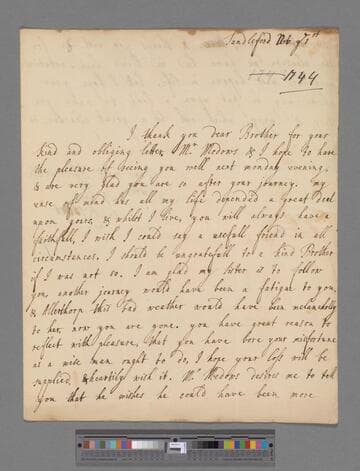 Sandleford Feb ye 1st
1744
I thank you dear Brother for your
kind and obliging letter, Mr Medows & I hope to have
the pleasure of seeing you well next monday evening,
& are very glad you are so after your journey. my
ease of mind has all my life depended a great deal
upon yours, & whilst I live, you will always have a
faithfull, I wish I could say a usefull friend in all
circumstances. I should be ungratefull to a kind Brother
if I was not so. I am glad my sister is to follow
you, another journey would have been a fatigue to you,
& Allerthorp this bad weather would have been melancholy
to her, now you are gone. you have great reason to
reflect with pleasure, that you have bore your misfortune
as a wise man ought to do, I hope your loss will be
supplied, & heartily wish it. Mr Medows desires me to tell
you that he wishes he could have been more